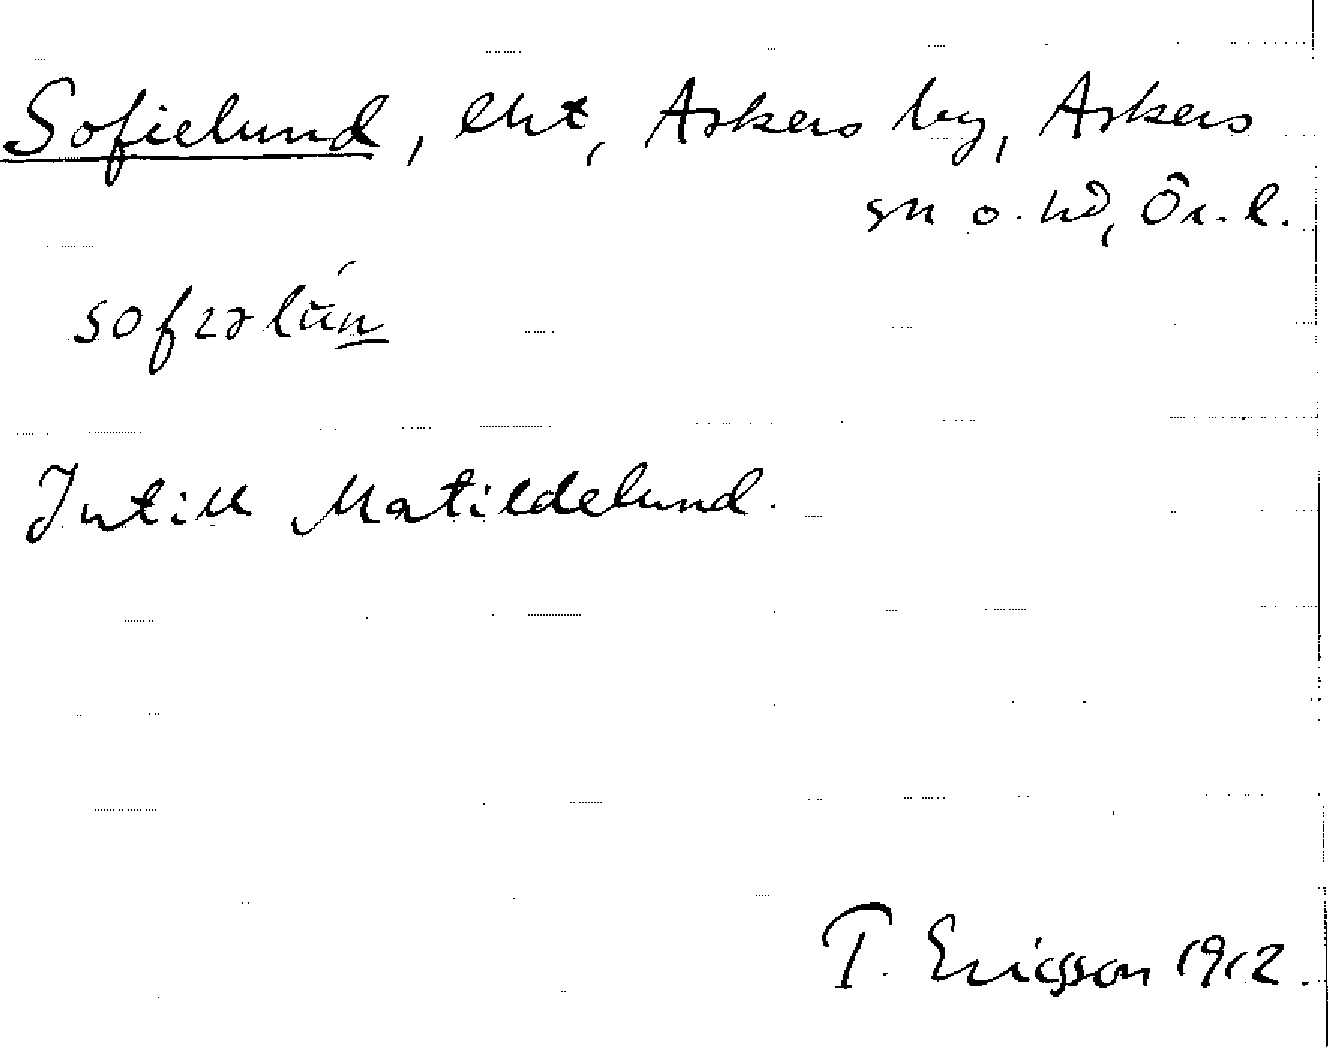 Sofielund, lht, Askers by, Askers
sn o. hd, Ör. l.
sofıəlún
Intill Matildelund.
T. Ericsson 1912.